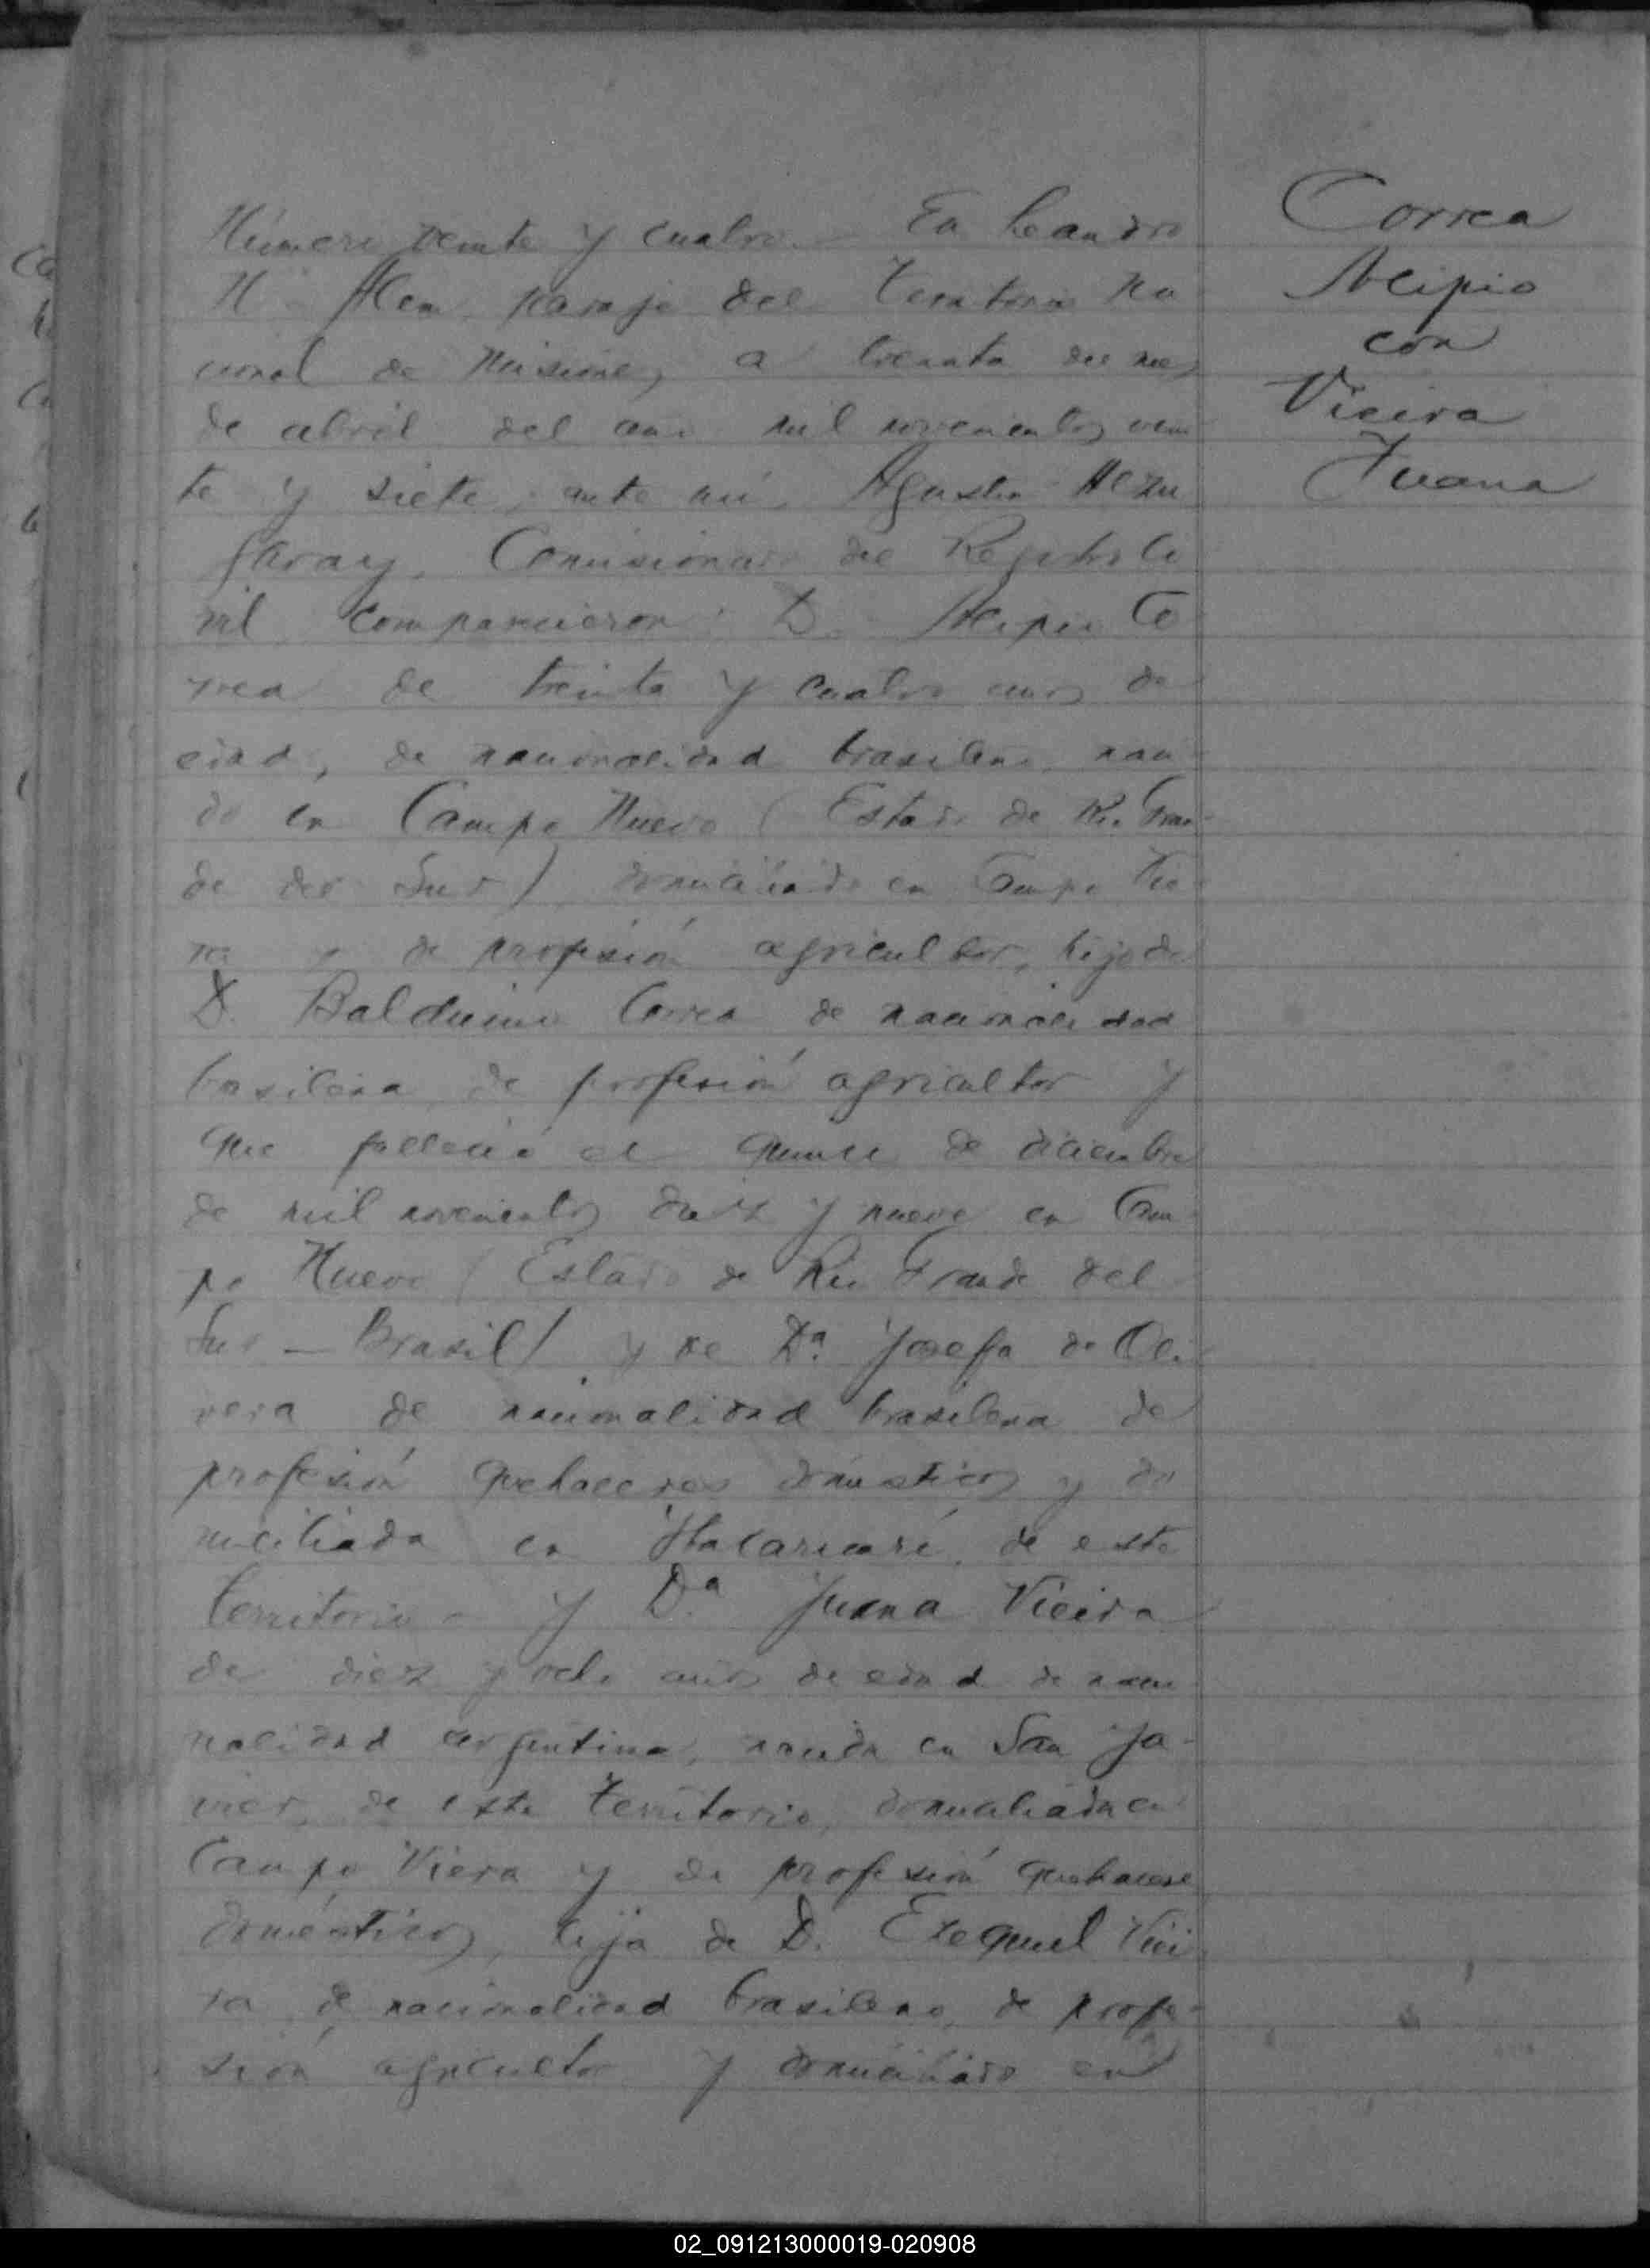 Correa
Alipio
con
Vieira
Juana
Número veinte y cuatro. — En Leandro
N. Alem paraje del territorio Na
cional de Misiones, a treinta del mes
de abril del año mil novecientos vein
te y siete, ante mí, Agustin
garay, Comisionado del Registro Ci
vil comparecieron: D. Alipio Co
rrea de treinta y cuatro años de
edad, de nacionalidad brasileno naci
do en Campo Nuevo (Estado de Rio Gran-
de del Sur) domiciliado en Campo Vie
ra y de profesión agricultor, hijo de
D. Balduino Correa de nacionalidad
brasilena de profesión agricultor y
que falleció el quince de diciembre
de mil novecientos diez y nueve en Cam
po Nuevo (Estado de Rio Grande del
Sur — Brasil) y de Da. Josefa de Oli
vera de nacionalidad brasilena de
profesión quehaceres domesticos y do
miciliada en de este
territorio — y Da. Juana Vieira
de diez y ocho años de edad de nacio
nalidad argentina, nacida en San Ja-
vier, de este territorio, domiciliada en
Campo Viera y de profesión quehaceres
domésticos, hija de D. Exequiel Viei
ra, de nacionalidad brasileno, de profe-
sión agricultor y domiciliado en
02_091213000019-020908